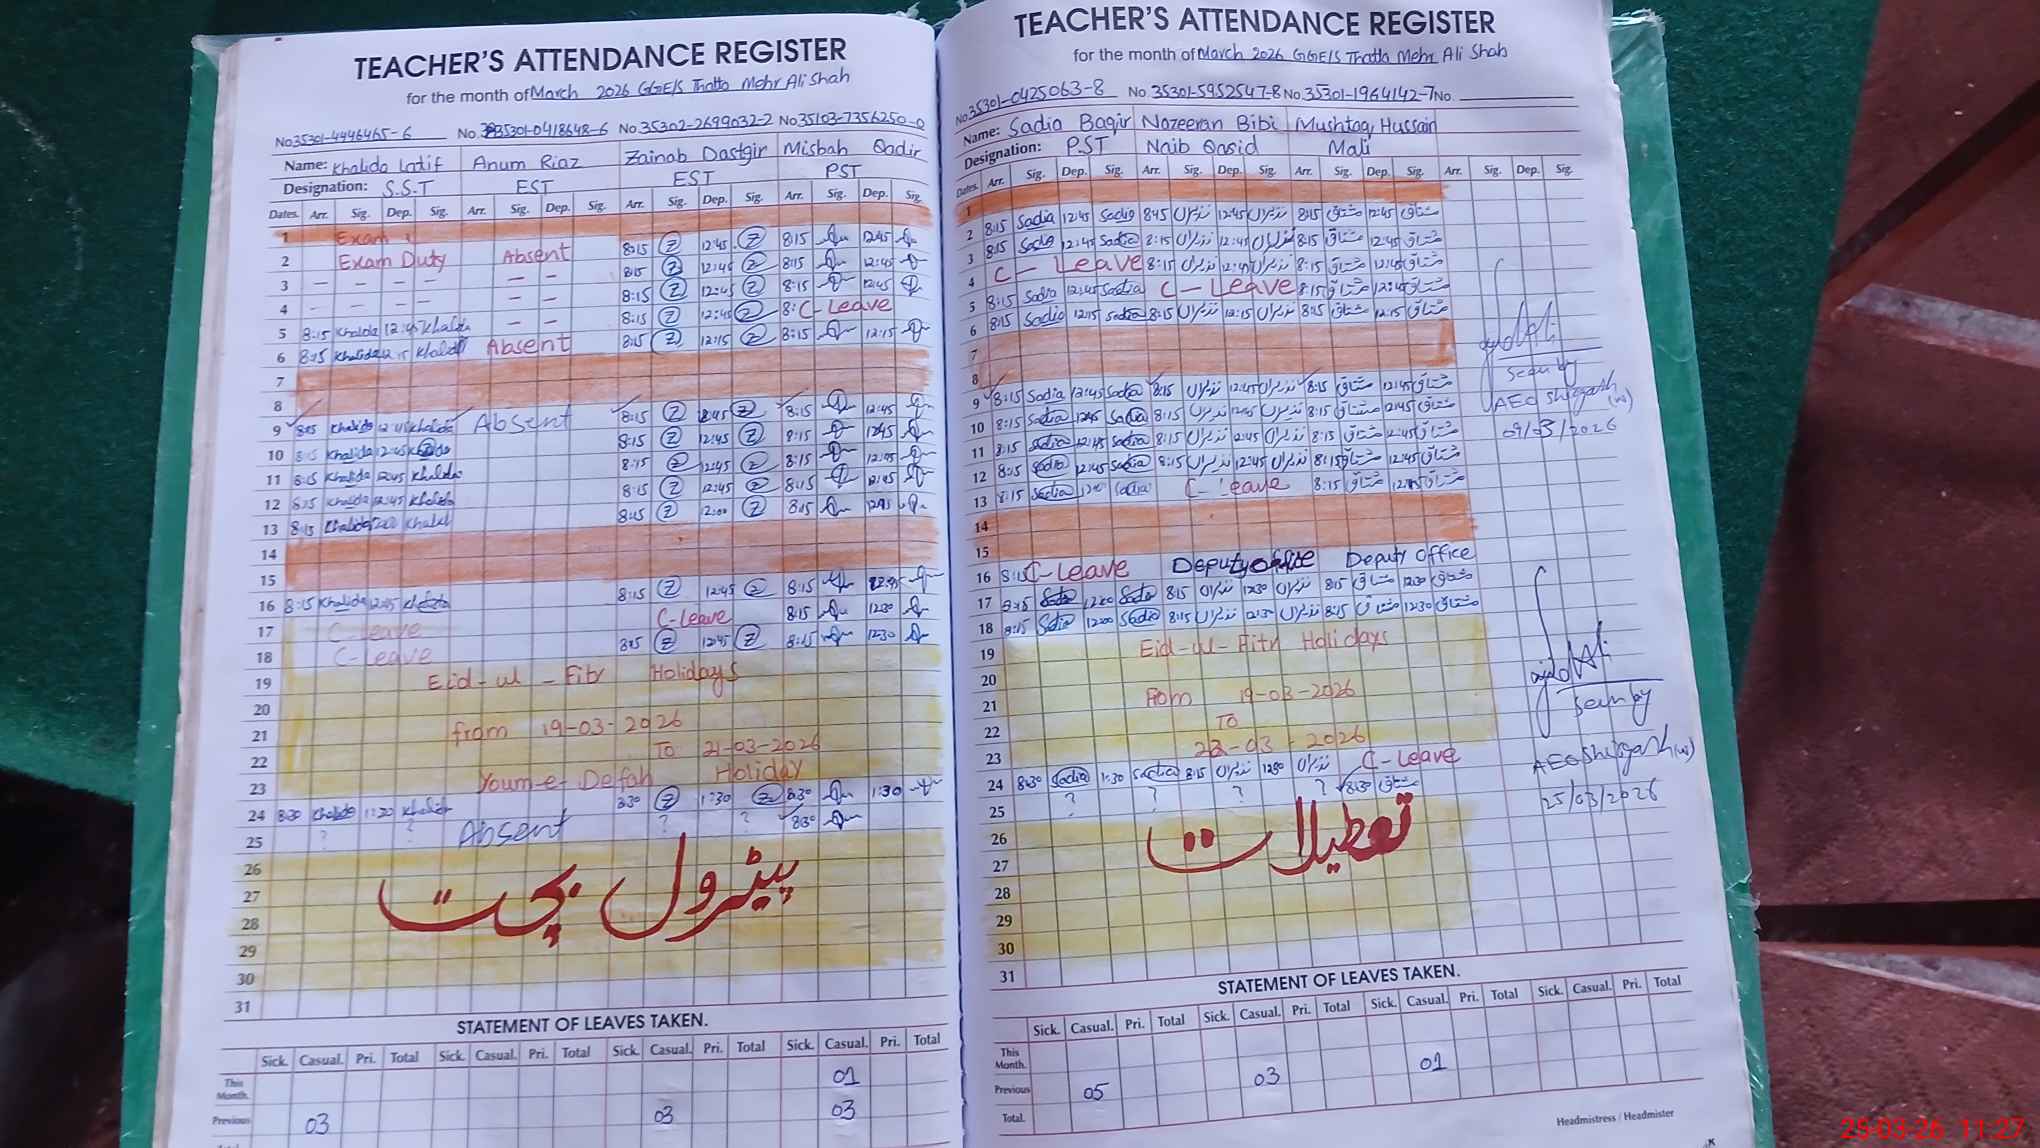 TEACHER'S ATTENDANCE REGISTER
for the month of March 2026 GGE/S Thatta Mehr Ali Shah
No 35301-4446465-6 No. 35301-0418648-6 No 35302-2699032-2 No 35103-7356250-0
Name: Khalida Latif Anum Riaz Zainab Dastgir Misbah Qadir
Designation: S.S.T EST EST PST
Dates. Arr. Sig. Dep. Sig. Arr. Sig. Dep. Sig. Arr. Sig. Dep. Sig. Arr. Sig. Dep. Sig.
1 Exam
2 Exam Duty Absent 8:15 Z 12:45 Z 8:15 12:45
3 — — — — — — 8:15 Z 12:45 Z 8:15 12:45
4 - — — — — — 8:15 Z 12:45 Z 8:15 12:45
5 8:15 Khalida 12:45 Khalida — — 8:15 Z 12:45 Z 8: C-Leave
6 8:15 Khalida 12:15 Khalida Absent 8:15 Z 12:15 Z 8:15 12:15
7
8
9 8:15 Khalida 12:45 Khalida Absent 8:15 Z 12:45 Z 8:15 12:45
10 8:15 Khalida 12:45 Khalida 8:15 Z 12:45 Z 8:15 12:45
11 8:15 Khalida 12:45 Khalida 8:15 Z 12:45 Z 8:15 12:45
12 8:15 Khalida 12:45 Khalida 8:15 Z 12:45 Z 8:15 12:45
13 8:15 Khalida Khalid 8:15 Z 12:00 Z 8:15
14
15
16 8:15 Khalida 12:45 Khalida 8:15 Z 12:45 Z 8:15 12:45
17 C-Leave C-Leave 8:15 12:30
18 C-Leave 8:15 Z 12:45 Z 8:15 12:30
19 Eid-ul-Fitr Holidays
20
21 from 19-03-2026
22 To 21-03-2026
23 Youm-e-Defah Holiday
24 8:30 Khalida 1:30 Khalida 8:30 Z 1:30 Z 8:30 1:30
25 ? ? Absent ? ? 8:30
26
27 پیٹرول بچت
28
29
30
31
STATEMENT OF LEAVES TAKEN.
Sick. Casual. Pri. Total Sick. Casual. Pri. Total Sick. Casual. Pri. Total Sick. Casual. Pri. Total
This Month. 01
Previous 03 03 03
TEACHER'S ATTENDANCE REGISTER
for the month of March 2026 GGE/S Thatta Mehr Ali Shah
No 35301-0425063-8 No 35301-5952547-8 No 35301-1964142-7 No.
Name: Sadia Baqir Nazeeran Bibi Mushtaq Hussain
Designation: PST Naib Qasid Mali
Dates. Arr. Sig. Dep. Sig. Arr. Sig. Dep. Sig. Arr. Sig. Dep. Sig. Arr. Sig. Dep. Sig.
1
2 8:15 Sadia 12:45 Sadia 8:45 نذیراں 12:45 نذیراں 8:15 مشتاق 12:45 مشتاق
3 8:15 Sadia 12:45 Sadia 8:15 نذیراں 12:45 نذیراں 8:15 مشتاق 12:45 مشتاق
4 C-Leave 8:15 نذیراں 12:45 نذیراں 8:15 مشتاق 12:45 مشتاق
5 8:15 Sadia 12:45 Sadia C-Leave 8:15 مشتاق 12:45 مشتاق
6 8:15 Sadia 12:15 Sadia 8:15 نذیراں 12:15 نذیراں 8:15 مشتاق 12:15 مشتاق
7
8
9 8:15 Sadia 12:45 Sadia 8:15 نذیراں 12:45 نذیراں 8:15 مشتاق 12:45 مشتاق
10 8:15 Sadia 12:45 Sadia 8:15 نذیراں 12:45 نذیراں 8:15 مشتاق 12:45 مشتاق
11 8:15 Sadia 12:45 Sadia 8:15 نذیراں 12:45 نذیراں 8:15 مشتاق 12:45 مشتاق
12 8:15 Sadia 12:45 Sadia 8:15 نذیراں 12:45 نذیراں 8:15 مشتاق 12:45 مشتاق
13 8:15 Sadia Sadia C-Leave 8:15 مشتاق مشتاق
14
15
16 8:15 C-Leave Deputy office Deputy Office
17 8:15 Sadia 12:00 Sadia 8:15 نذیراں 12:30 نذیراں 8:15 مشتاق 12:30 مشتاق
18 8:15 Sadia 12:00 Sadia 8:15 نذیراں 12:30 نذیراں 8:15 مشتاق 12:30 مشتاق
19 Eid-ul-Fitr Holidays
20
21 From 19-03-2026
22 TO
23 23-03-2026
24 8:30 Sadia 1:30 Sadia 8:15 نذیراں 12:30 نذیراں C-Leave
25 ? ? ? ? 8:30 مشتاق
26 تعطیلات
27
28
29
30
31
Seen by
AEO Shergarh (w)
09/03/2026
Seen by
AEO Shergarh (w)
25/03/2026
STATEMENT OF LEAVES TAKEN.
Sick. Casual. Pri. Total Sick. Casual. Pri. Total Sick. Casual. Pri. Total Sick. Casual. Pri. Total
This Month.
Previous 05 03 01
Total.
Headmistress / Headmister
25-03-26 11:27